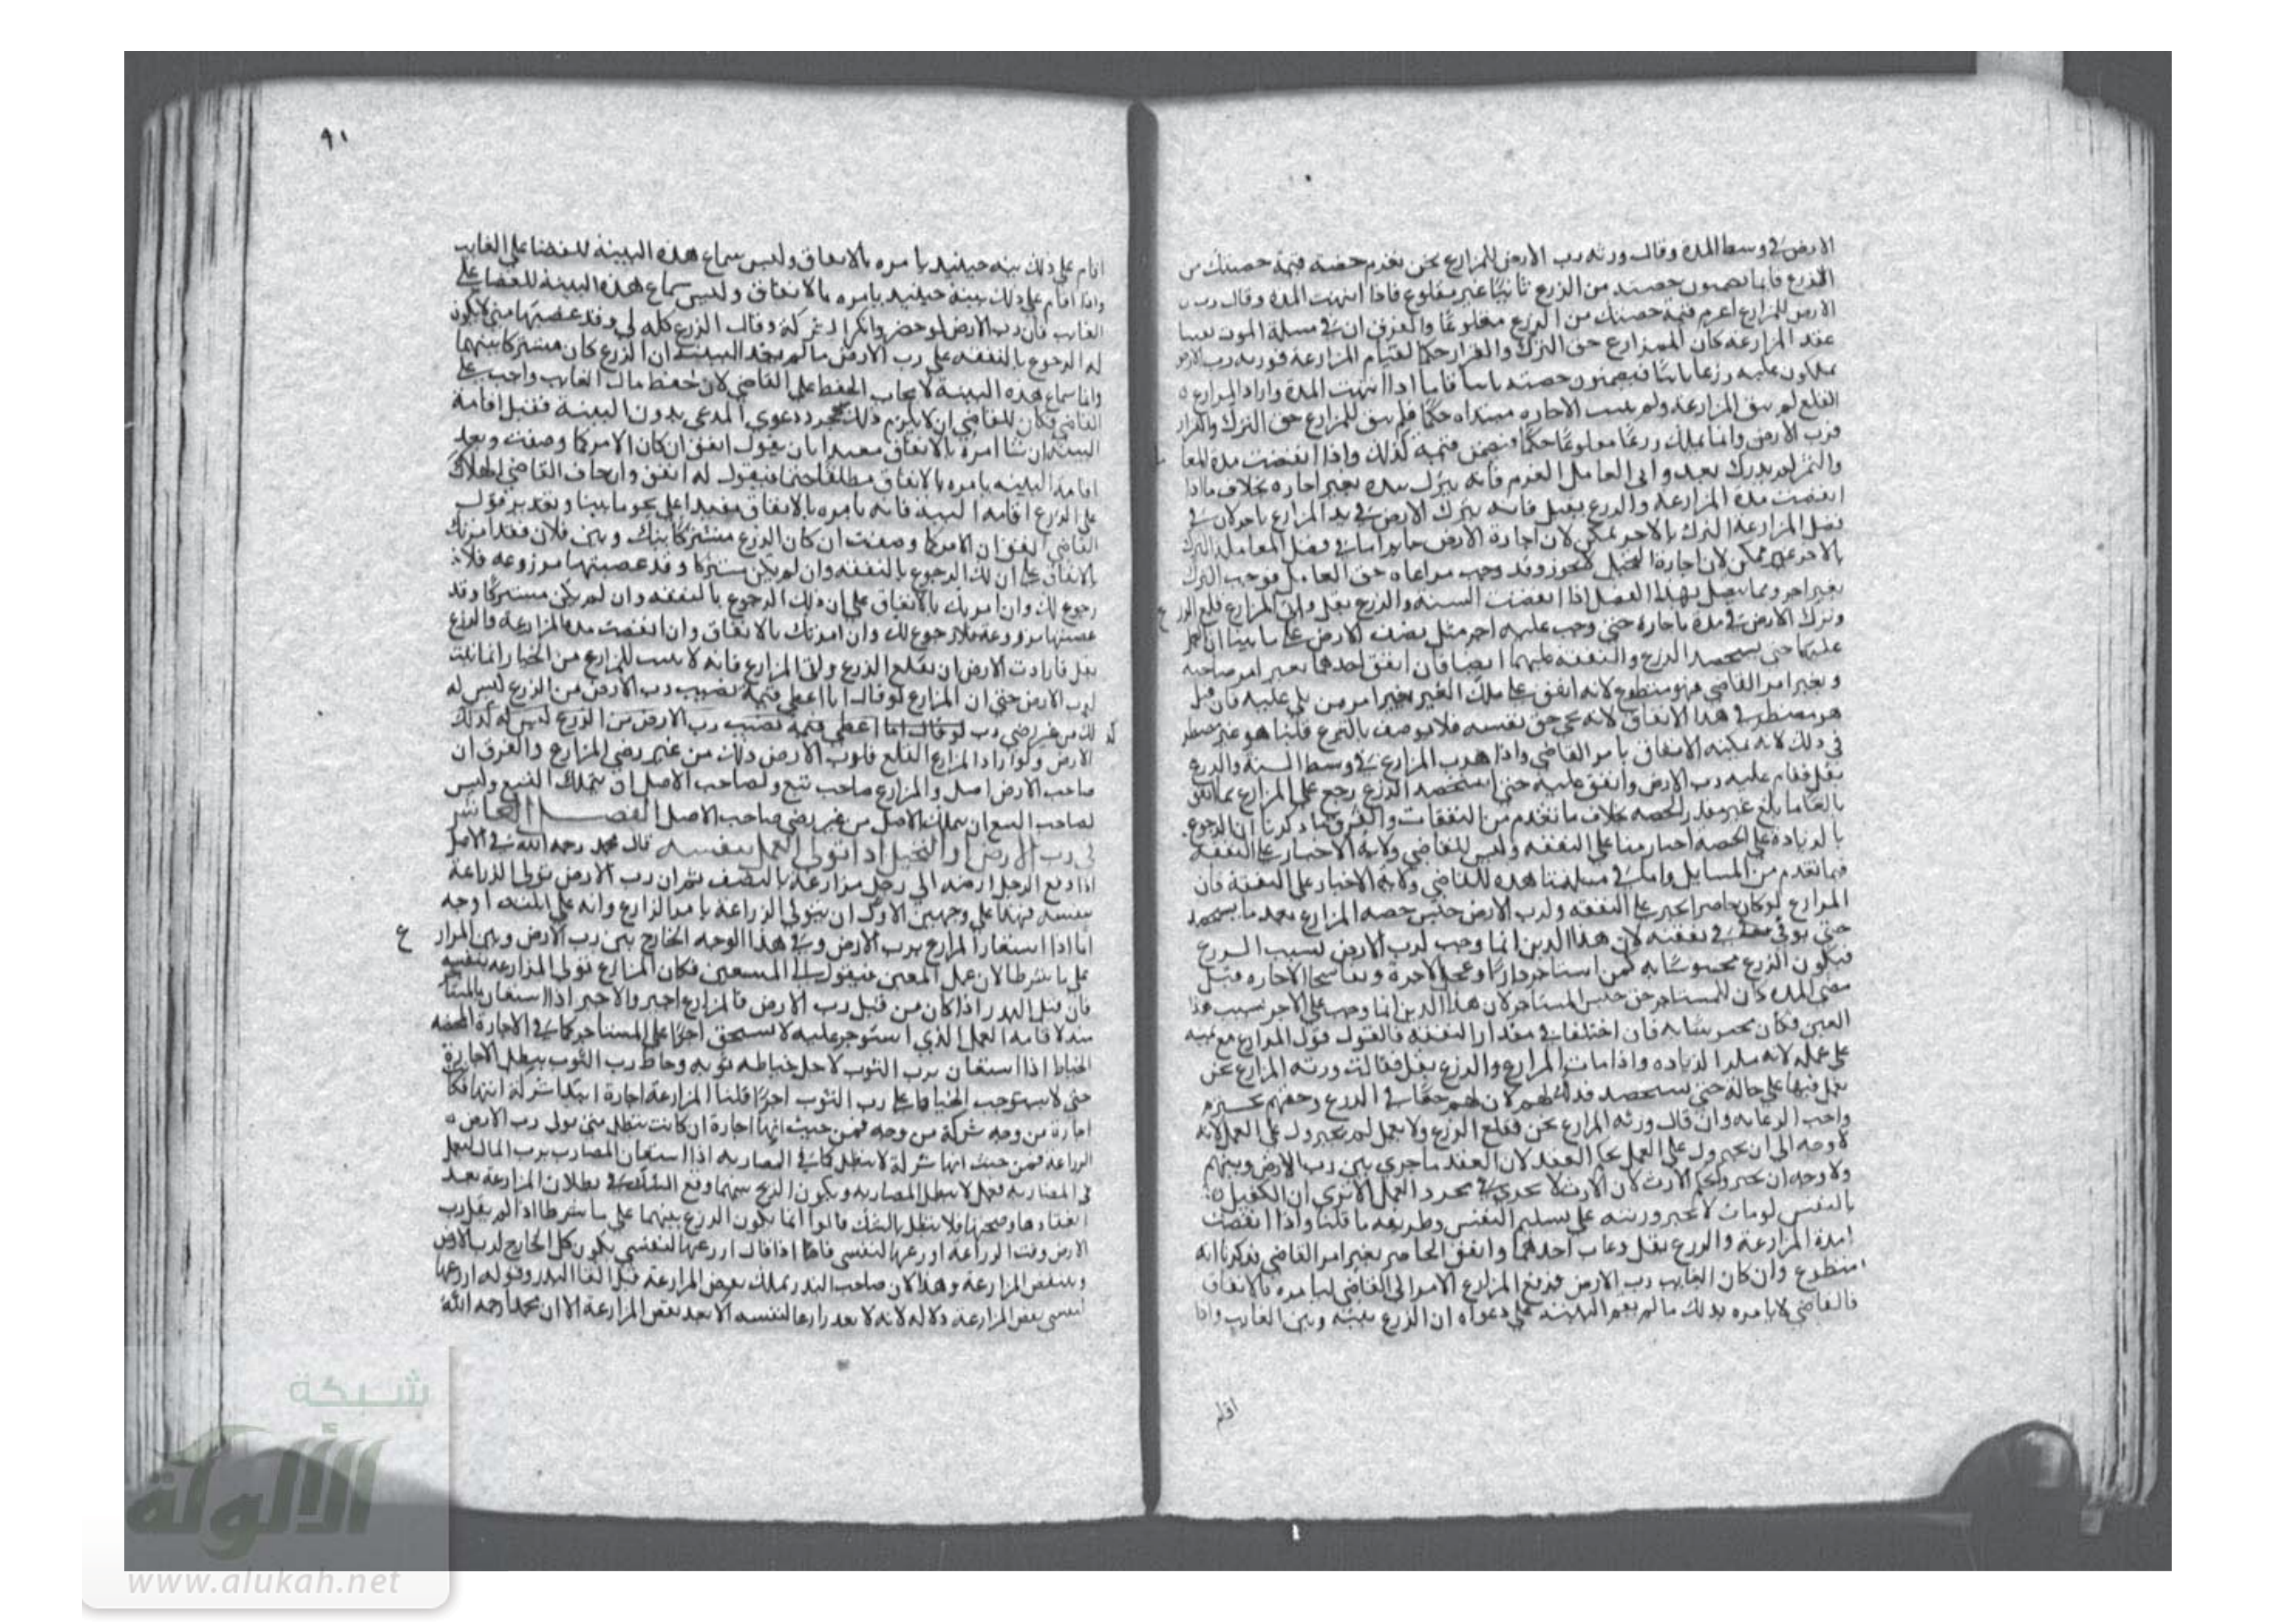 الارض في وسط المدة وقال ورثه رب الارض للمزارع نحن نغرم حصة قيمة حصتك من
الزرع فانما يضمنون حصته من الزرع ثابتا غير مقلوع فاذا انتهت المدة وقال رب
الارض للمزارع اغرم قيمة حصتك من الزرع مقلوعا والفرق ان في مسئلة الموت
عقد المزارعة كان للمزارع حق الترك والقرار حكما لقيام المزارعة فورثه رب الارض
يملكون عليه زرعا فيضمنون حصته اما اذا انتهت المدة واراد المزارع
القلع لم يبق المزارعة ولم يثبت الاجاره مبتداه حكما فلم يبق للمزارع حق الترك والقرار
فرب الارض وانما يملك زرعا مقلوعا حكما فيضمن قيمته كذلك واذا انقضت مدة المعا
والثمر لم يدرك بعد وابى العامل الغرم فانه يترك بيده بغير اجاره بخلاف ما اذا
انقضت مدة المزارعة والزرع بقل فانه يترك الارض في يد المزارع باجر لان في
فصل المزارعة الترك بالاجر ممكن لان اجارة الارض جايز اما في فصل المعاملة الترك
بالاجر غير ممكن لان اجارة النخيل لا تجوز وقد وجب مراعاه حق العامل فوجب الترك
بغير اجر ومما يتصل بهذا الفصل اذا انقضت السنه والزرع بقل وابى المزارع قلع الزر
وترك الارض في مدة باجاره حتى وجب عليه اجر مثل نصف الارض على ما بينا ان العمل
عليهما حتى يستحصد الزرع والنفقة عليهما ايضا فان انفق احدهما بغير امر صاحبه
وبغير امر القاضي فهو متطوع لانه انفق على ملك الغير بغير امر من يلي عليه فان قيل
هو مضطر في هذا الانفاق لانه يحيي حق نفسه فلا يوصف بالتبرع قلنا هو غير مضطر
في ذلك لانه يمكنه الانفاق بامر القاضي واذا هرب المزارع في وسط السنة والزرع
بقل فقام عليه رب الارض وانفق عليه حتى استحصد الزرع رجع على المزارع بما انفق
بالغا ما بلغ غير مقدر بالحصه بخلاف ما تقدم من النفقات والفرق ما ذكرنا ان الرجوع
بالزيادة على الحصة اجبار منا على النفقه وليس للقاضي ولاية الاجبار على النفقة
فيما تقدم من المسايل واما في مسئلتنا هذه للقاضي ولاية الاجبار على النفقة فان
المزارع لو كان حاضرا يجبر على النفقه ولرب الارض حبس حصه المزارع بعد ما يستحصد
حتى يوفي نفقته لان هذا الدين انما وجب لرب الارض بسبب الزرع
فيكون الزرع محبوسا به كمن استاجر دارا وعجل الاجرة وتفاسخا الاجاره قبل
مضي المده كان للمستاجر حق حبس المستاجر لان هذا الدين انما وجب على الاجر بسبب هذا
العين فكان محبوسا به فان اختلفا في مقدار النفقه فالقول قول المزارع مع يمينه
على عمله لانه الزياده واذا مات المزارع والزرع بقل فقالت ورثه المزارع نحن
نعمل فيها على حاله حتى يستحصد فذلك لهم لان لهم حقا في الزرع وحقهم محترم
واجب الرعايه وان قال ورثه المزارع نحن نقلع الزرع ولا نعمل لم يجبروا على العمل لانه
لا وجه الى ان يجبروا على العمل بحكم العقد لان العقد ما جرى بين رب الارض وبينهم
ولا وجه ان يجبروا بحكم الارث لان الارث لا يجري في مجرد العمل الا ترى ان الكفيل
بالنفس لو مات لا يجبر ورثته على تسليم النفس وطريقه ما قلنا واذا انقضت
مدة المزارعة والزرع بقل وغاب احدهما وانفق الحاضر بغير امر القاضي ذكرنا انه
متطوع وان كان الغايب رب الارض فرفع المزارع الامر الى القاضي ليامره بالانفاق
فالقاضي لا يامره بذلك ما لم يقم البينة على دعواه ان الزرع بينه وبين الغايب واذا
اقام
٩١
اقام على ذلك بينه حينيذ يامره بالانفاق وليس سماع هذه البينة للقضا على الغايب
واذا اقام على ذلك بينة حينيذ يامره بالانفاق وليس سماع هذه البينة للقضا على
الغايب فان رب الارض لو حضر وانكر الشركة وقال الزرع كله لي وقد غصبتها مني لا يكون
له الرجوع بالنفقه على رب الارض ما لم يعد البينة ان الزرع كان مشتركا بينهما
وانما سماع هذه البينة لايجاب الحفظ على القاضي لان حفظ مال الغايب واجب على
القاضي فكان للقاضي ان لا يلزم ذلك بمجرد دعوى المدعي بدون البينة فقبل اقامة
البينة ان شا امره بالانفاق مقيدا بان يقول انفق ان كان الامر كما وصفت وبعد
اقامة البينه يامره بالانفاق مطلقا حتما فيقول له انفق وان خاف القاضي الهلاك
على الزرع اقامة البينة فانه يامره بالانفاق مقيدا على نحو ما بينا وتقديره قول
القاضي انفق ان الامر كما وصفت ان كان الزرع مشتركا بينك وبين فلان فقد امرتك
بالانفاق على ان لك الرجوع بالنفقه وان لم يكن مشتركا وقد غصبتها مزروعه فلا
رجوع لك وان امرتك بالانفاق على ان ذلك الرجوع بالنفقه وان لم يكن مشتركا وقد
غصبتها مزروعة فلا رجوع لك وان امرتك بالانفاق وان انقضت مدة المزارعة والزرع
بقل فارادت الارض ان يقلع الزرع وابى المزارع فانه لا يثبت للمزارع من الخيار انما يثبت
لرب الارض حتى ان المزارع لو قال انا اعطي قيمة نصيب رب الارض من الزرع ليس له
ذلك من غير رضى رب لو قال انا اعطي قيمة نصيب رب الارض من الزرع ليس له ذلك
الارض ولو اراد المزارع القلع فلرب الارض ذلك من غير رضى المزارع والفرق ان
صاحب الارض اصل والمزارع صاحب تبع ولصاحب الاصل ان يتملك التبع وليس
لصاحب التبع ان يتملك الاصل من غير رضى صاحب الاصل الفصل العاشر
في رب الارض او النخيل اذا تولى العمل بنفسه قال محمد رحمه الله في الاصل
اذا دفع الرجل ارضه الى رجل مزارعة بالنصف ثم ان رب الارض تولى الزراعة
بنفسه فهذا على وجهين الاول ان يتولى الزراعة بامر المزارع وانه على ثلثه اوجه
اما اذا استعان المزارع برب الارض وفي هذا الوجه الخارج بين رب الارض وبين المزار
على ما شرطا لان عمل المعين منقول الى المستعين فكان المزارع تولى المزارعه بنفسه
فان قيل البذر اذا كان من قبل رب الارض فالمزارع اجير والاجير اذا استعان بالمستاجر
منه لاقامة العمل الذي استوجر عليه لا يستحق اجرا على المستاجر كما في الاجارة المحضه
الخياط اذا استعان برب الثوب لاجل خياطه ثوبه وخاط رب الثوب يبطل الاجارة
حتى لا يستوجب الخياط على رب الثوب اجرا قلنا المزارعة اجارة ابتدا شركة انتها فكانت
اجارة من وجه شركة من وجه فمن حيث انها اجارة ان كانت تبطل متى تولى رب الارض
الزراعة فمن حيث انها شركة لا تبطل كما في المضاربه اذا استعان المضارب برب المال ليعمل
في المضاربه فعمل لا تبطل المضاربه ويكون الربح بينهما وقع الشك في بطلان المزارعة بعد
انعقادها وصحتها فلا تبطل بالشك قالوا انما يكون الزرع بينهما على ما شرطا اذا لم يقل رب
الارض وقت الزراعة ازرعها لنفسي فاما اذا قال ازرعها لنفسي يكون كل الخارج لرب الارض
وينتقض المزارعة وهذا لان صاحب البذر يملك نقض المزارعة قبل القا البذر وقوله ازرعها
لنفسي نقض المزارعة دلاله لانه لا يعد زارعا لنفسه الا بعد نقض المزارعة الا ان محمدا رحمه الله
شبكة
الألوكة
www.alukah.net